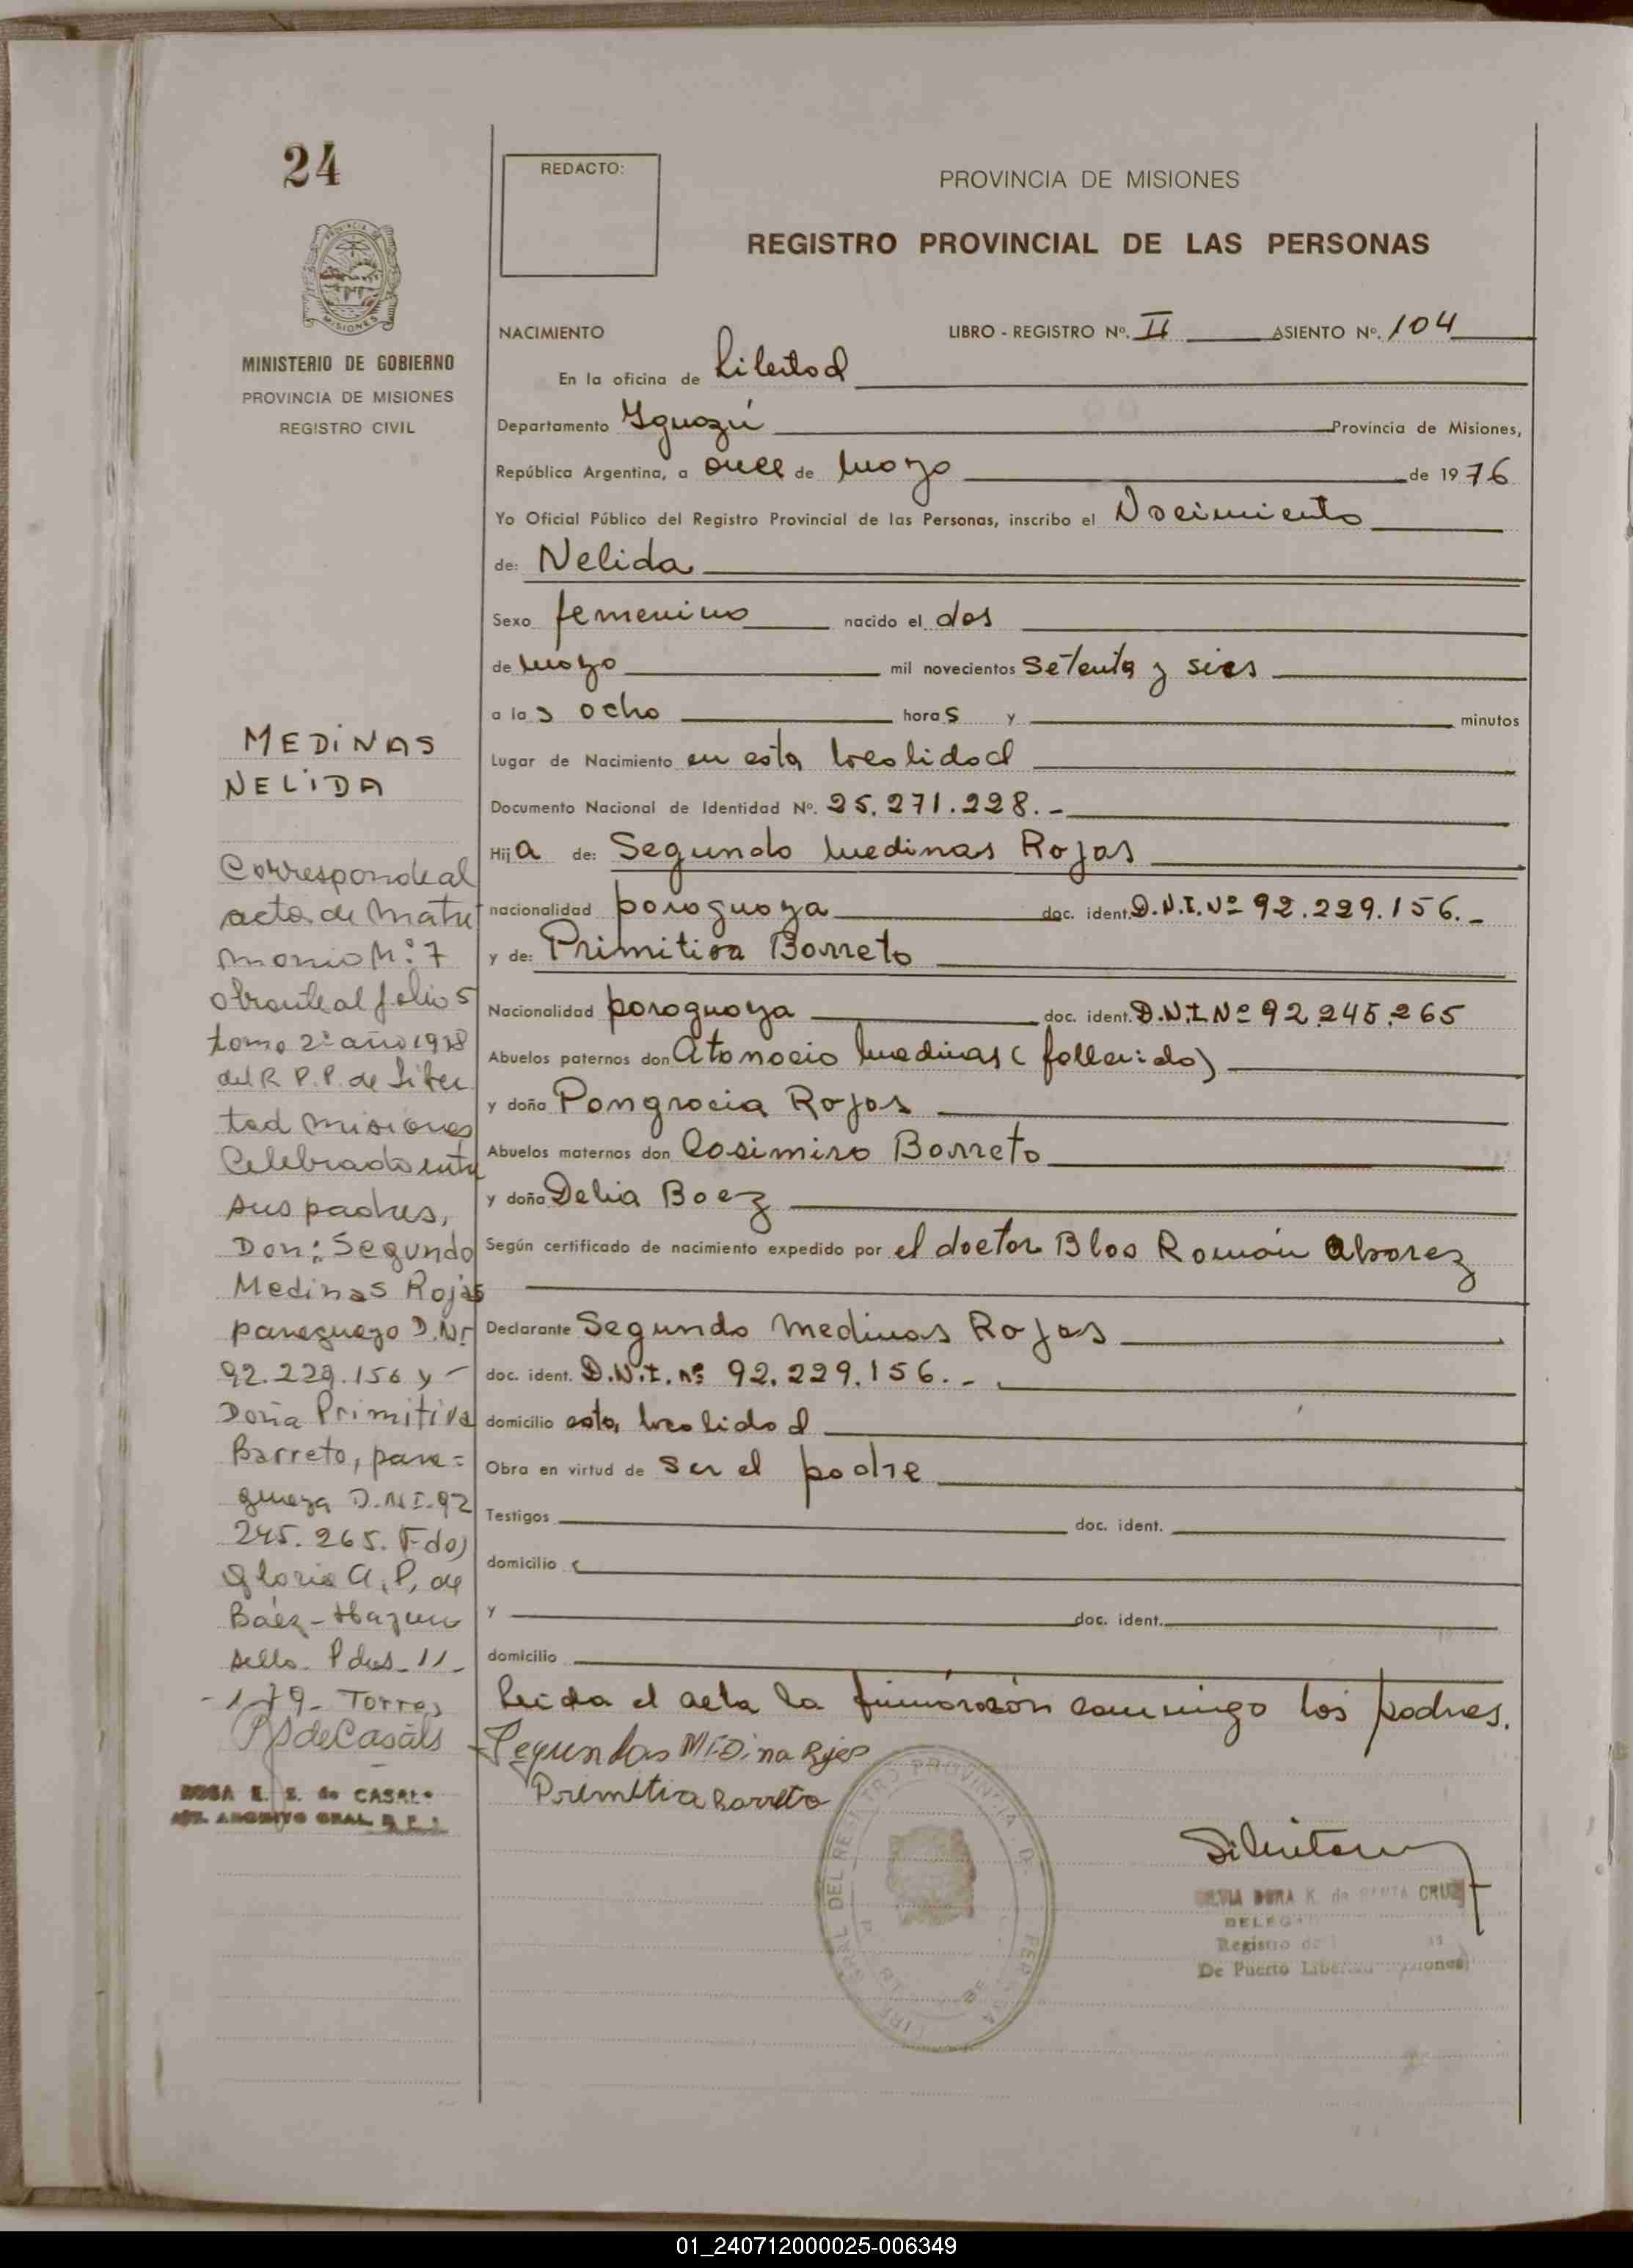 24
MINISTERIO DE GOBIERNO
PROVINCIA DE MISIONES
REGISTRO CIVIL
REDACTO:
PROVINCIA DE MISIONES
REGISTRO PROVINCIAL DE LAS PERSONAS
NACIMIENTO LIBRO - REGISTRO Nº. II ASIENTO Nº. 104
En la oficina de Libertad
Departamento Iguazú Provincia de Misiones,
República Argentina, a once de mayo de 1976
Yo Oficial Público del Registro Provincial de las Personas, inscribo el Nacimiento
de: Nelida
Sexo femenino nacido el dos
de mayo mil novecientos setenta y seis
a las ocho horas y minutos
Lugar de Nacimiento en esta localidad
Documento Nacional de Identidad Nº. 25.271.228.-
Hija de: Segundo Medinas Rojas
nacionalidad paraguaya doc. ident. D.N.I. Nº 92.229.156.-
y de: Primitiva Barreto
Nacionalidad paraguaya doc. ident. D.N.I. Nº 92.245.265
Abuelos paternos don Atanacio Medinas (fallecido)
y doña Pangracia Rojas
Abuelos maternos don Casimiro Barreto
y doña Delia Baez
Según certificado de nacimiento expedido por el doctor Blas Román Alvarez
Declarante Segundo Medinas Rojas
doc. ident. D.N.I. Nº 92.229.156.-
domicilio esta localidad
Obra en virtud de ser el padre
Testigos doc. ident.
domicilio
y doc. ident.
domicilio
Leida el acta la firmarón conmigo los padres.
Segundas Medina Rojas
Premitia Barreto
SILVIA DORA K. de SANTA CRUZ
DELEG
Registro de
De Puerto Libertad
MEDINAS
NELIDA
Corresponde al
acta de Matri
monio Nº 7
obrante al folio 5
tomo 2º año 1978
del R.P.P. de Liber
tad Misiones
Celebrado entre
sus padres,
Don: Segundo
Medinas Rojas
paraguayo D.N.I
92.229.156 y -
Doña Primitiva
Barreto, para=
guaya D.N.I. 92
245.265. Fdo)
Gloria A. P. de
Báez - Hay un
sello. Pdas - 11 -
- 1 - 79 - Torres
RSdeCasals
ROSA E. S. de CASALS
ARCHIVO GRAL. R P P
01_240712000025-006349